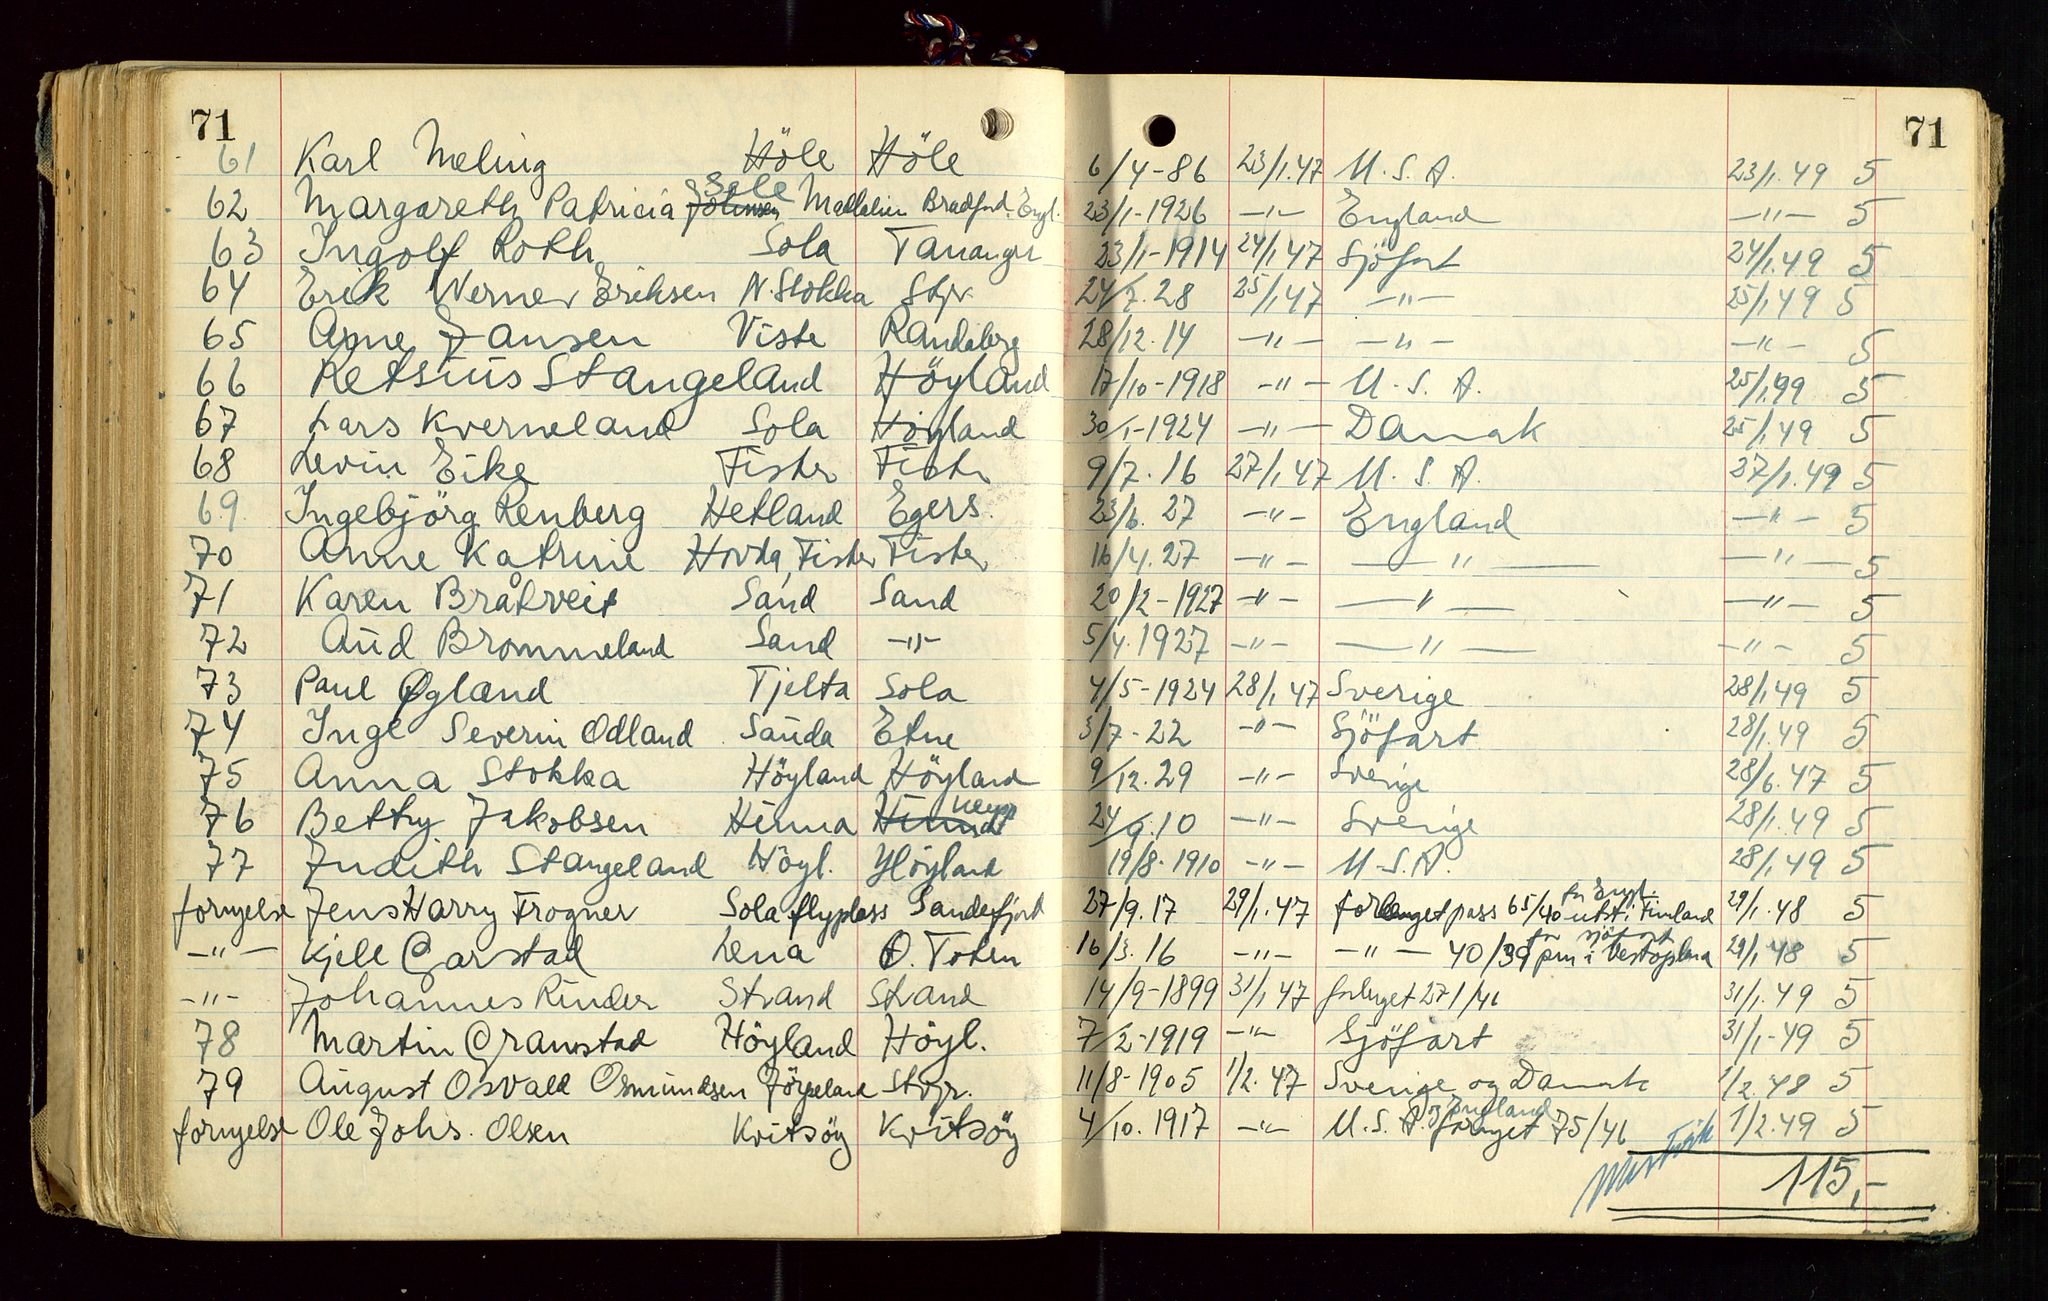 71 71
61 Karl Meling Höle Höle 6/4-86 23/1.47 U.S.A. 23/1.49 5
62 Margareth Patricia Johnsen Sole Bradford Engl. 23/1-1926 -"- England -"- 5
63 Ingolf Roth Sola Tananger 23/1-1914 24/1.47 Sjöfart 24/1.49 5
64 Erik Werner Eriksen N.Stokka Stgr. 24/7.28 25/1.47 -"- 25/1.49 5
65 Arne Jansen Viste Randaberg 28/12.14 -"- -"- -"- 5
66 Retsius Stangeland Höyland 17/10-1918 -"- U.S.A. 25/1.49 5
67 Lars Kverneland Sola Höyland 30/1-1924 -"- Danmk 25/1.49 5
68 Levin Eike Fister Fister 9/7.16 27/1.47 U.S.A. 27/1.49 5
69. Ingebjörg Renberg Hetland Egers. 23/6.27 -"- England -"- 5
70 Anne Katrine Hovda, Fister Fister 16/4.27 -"- -"- -"- 5
71 Karen Bråtveit Sand Sand 20/2-1927 -"- -"- -"- 5
72 Aud Brommeland Sand -"- 5/4.1927 -"- -"- -"- 5
73 Paul Øgland Tjelta Sola 4/5-1924 28/1.47 Sverige 28/1.49 5
74 Inge Severin Odland Sauda Etne 3/7-22 -"- Sjöfart 28/1.49 5
75 Anna Stokka Höyland Höyland 9/12.29 -"- Sverige 28/6.47 5
76 Bethy Jakobsen Hinna Hinna 24/9.10 -"- Sverige 28/1.49 5
77 Judith Stangeland Höyl. Höyland 19/8-1910 -"- U.S.A. 28/1.49 5
fornyelse Jens Harry Frogner Sola flyplass Sandefjord 27/9.17 29/1.47 forlenget pass 65/40 for Engl. utst. i Finland 29/1.48 5
-"- Kjell Garstad Lena Ø. Toten 16/3.16 -"- -"- 40/39 for sjöfart pm i Vestoplana 29/1.48 5
-"- Johannes Rinder Strand Strand 14/9-1899 31/1.47 forlenget 271/46 31/1.49 5
78 Martin Gramstad Höyland Höyl. 7/2-1919 -"- Sjöfart 31/1-49 5
79 August Osvald Osmundsen Jörpeland Stgr. 11/8-1905 1/2.47 Sverige og Danmk 1/2.48 5
fornyelse Ole Johs. Olsen Kvitsöy Kvitsöy 4/10.1917 -"- U.S.A. og England fornyet 75/46 1/2.49 5
115,-